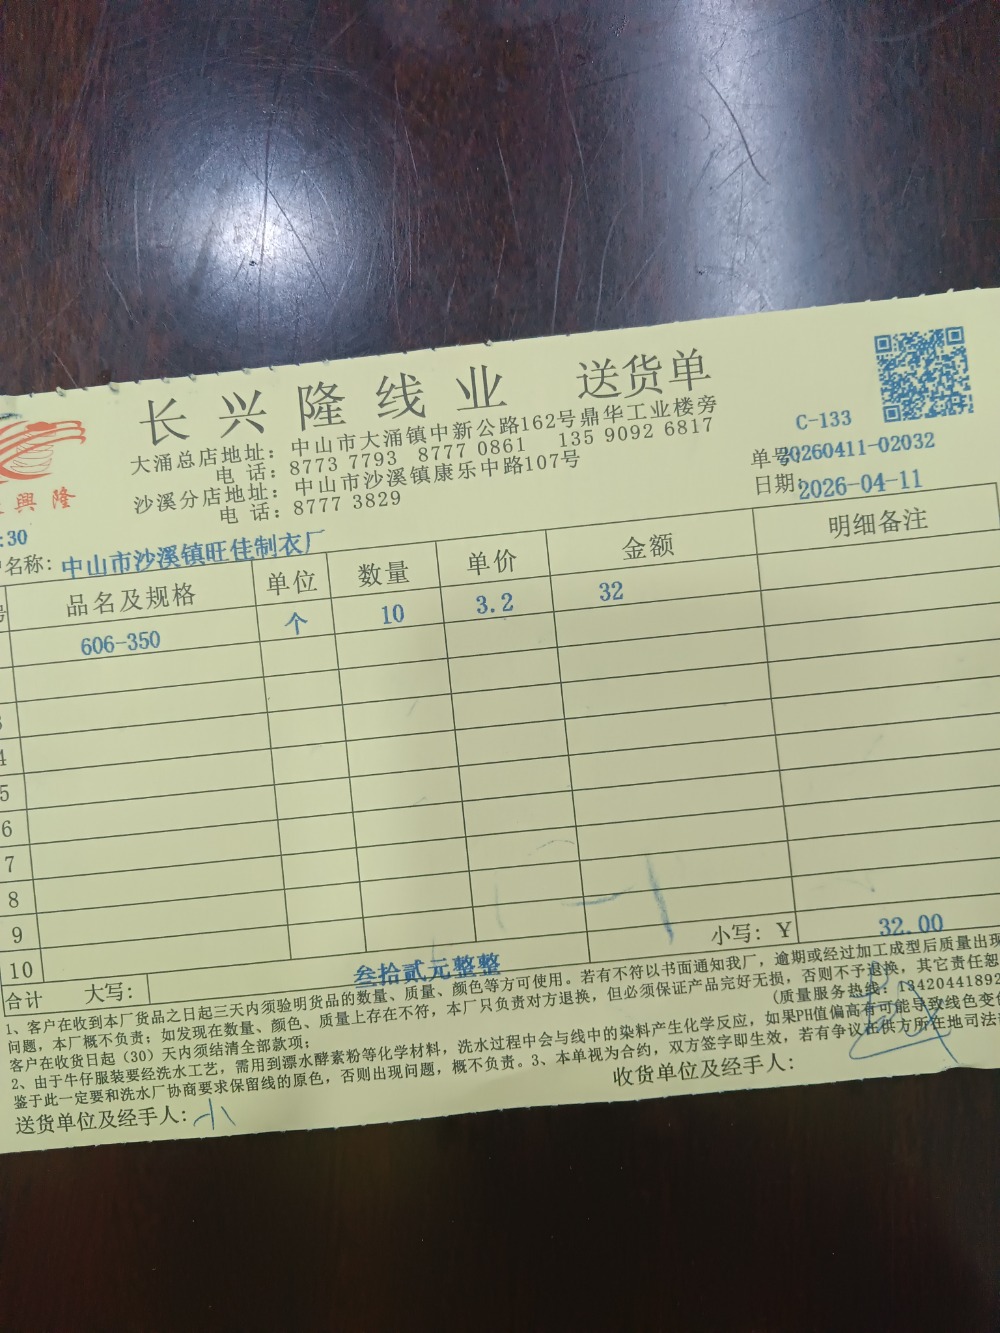 长兴隆线业 送货单
大涌总店地址：中山市大涌镇中新公路162号鼎华工业楼旁
电 话：8773 7793 8777 0861 135 9092 6817
沙溪分店地址：中山市沙溪镇康乐中路107号
电 话：8777 3829
興隆
C-133
单号：20260411-02032
日期：2026-04-11
:30
名称：中山市沙溪镇旺佳制衣厂
号 品名及规格 单位 数量 单价 金额 明细备注
606-350 个 10 3.2 32
3
4
5
6
7
8
9
10
合计 大写： 叁拾贰元整整 小写：￥ 32.00
1、客户在收到本厂货品之日起三天内须验明货品的数量、质量、颜色等方可使用。若有不符以书面通知我厂，逾期或经过加工成型后质量出现
问题，本厂概不负责；如发现在数量、颜色、质量上存在不符，本厂只负责对方退换，但必须保证产品完好无损，否则不予退换，其它责任恕
客户在收货日起（30）天内须结清全部款项；
(质量服务热线：13420441892
2、由于牛仔服装要经洗水工艺，需用到漂水酵素粉等化学材料，洗水过程中会与线中的染料产生化学反应，如果PH值偏高有可能导致线色变
鉴于此一定要和洗水厂协商要求保留线的原色，否则出现问题，概不负责。3、本单视为合约，双方签字即生效，若有争议在供方所在地司法
送货单位及经手人：
收货单位及经手人：